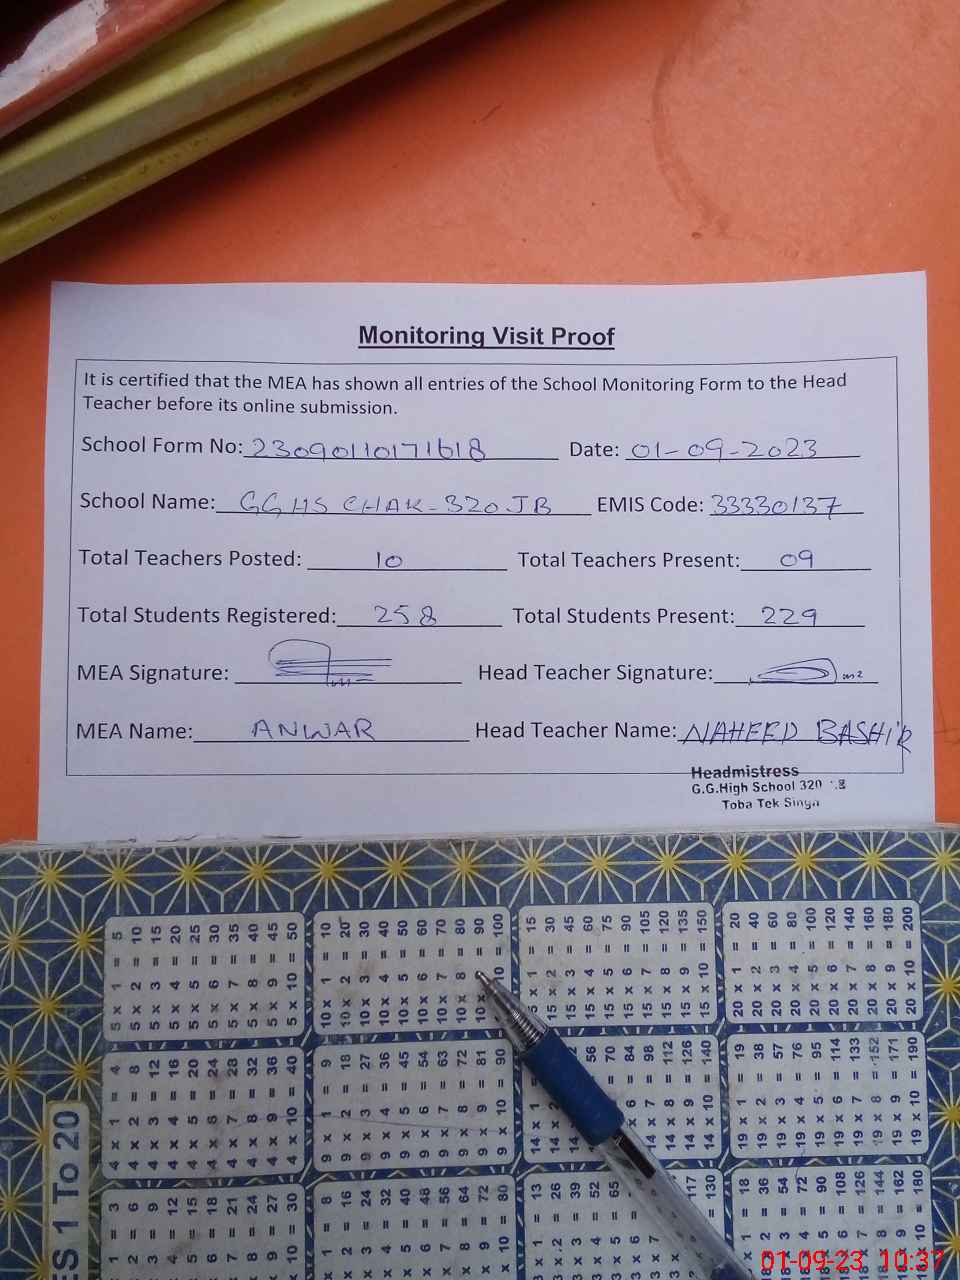 Monitoring Visit Proof
It is certified that the MEA has shown all entries of the School Monitoring Form to the Head
Teacher before its online submission.
School Form No: 23090110171618 Date: 01-09-2023
School Name: GGHS CHAK-320 JB EMIS Code: 33330137
Total Teachers Posted: 10 Total Teachers Present: 09
Total Students Registered: 258 Total Students Present: 229
MEA Signature: Head Teacher Signature:
MEA Name: ANWAR Head Teacher Name: NAHEED BASHIR
Headmistress
G.G.High School 320
Toba Tek Singh
ES 1 To 20
5 x 1 = 5
5 x 2 = 10
5 x 3 = 15
5 x 4 = 20
5 x 5 = 25
5 x 6 = 30
5 x 7 = 35
5 x 8 = 40
5 x 9 = 45
5 x 10 = 50
10 x 1 = 10
10 x 2 = 20
10 x 3 = 30
10 x 4 = 40
10 x 5 = 50
10 x 6 = 60
10 x 7 = 70
10 x 8 = 80
10 x = 90
10 = 100
5 x 1 = 15
15 x 2 = 30
15 x 3 = 45
15 x 4 = 60
15 x 5 = 75
15 x 6 = 90
15 x 7 = 105
15 x 8 = 120
15 x 9 = 135
15 x 10 = 150
20 x 1 = 20
20 x 2 = 40
20 x 3 = 60
20 x 4 = 80
20 x 5 = 100
20 x 6 = 120
20 x 7 = 140
20 x 8 = 160
20 x 9 = 180
20 x 10 = 200
4 x 1 = 4
4 x 2 = 8
4 x 3 = 12
4 x 4 = 16
4 x 5 = 20
4 x 6 = 24
4 x 7 = 28
4 x 8 = 32
4 x 9 = 36
4 x 10 = 40
9 x 1 = 9
9 x 2 = 18
9 x 3 = 27
9 x 4 = 36
9 x 5 = 45
9 x 6 = 54
9 x 7 = 63
9 x 8 = 72
9 x 9 = 81
9 x 10 = 90
14 x 1 =
14 x 2
14 x
56
= 70
6 = 84
14 x 7 = 98
14 x 8 = 112
14 x 9 = 126
14 x 10 = 140
19 x 1 = 19
19 x 2 = 38
19 x 3 = 57
19 x 4 = 76
19 x 5 = 95
19 x 6 = 114
19 x 7 = 133
19 x 8 = 152
19 x 9 = 171
19 x 10 = 190
1 = 3
2 = 6
3 = 9
4 = 12
5 = 15
6 = 18
7 = 21
8 = 24
9 = 27
10 = 30
1 = 8
2 = 16
3 = 24
4 = 32
5 = 40
6 = 48
7 = 56
8 = 64
9 = 72
10 = 80
x 1 = 13
x 2 = 26
3 x 3 = 39
3 x 4 = 52
3 x 5 = 65
3 x 6 =
3 x 7
117
= 130
x 1 = 18
x 2 = 36
x 3 = 54
x 4 = 72
x 5 = 90
x 6 = 108
x 7 = 126
x 8 = 144
x 9 = 162
10 = 180
01-09-23 10:37